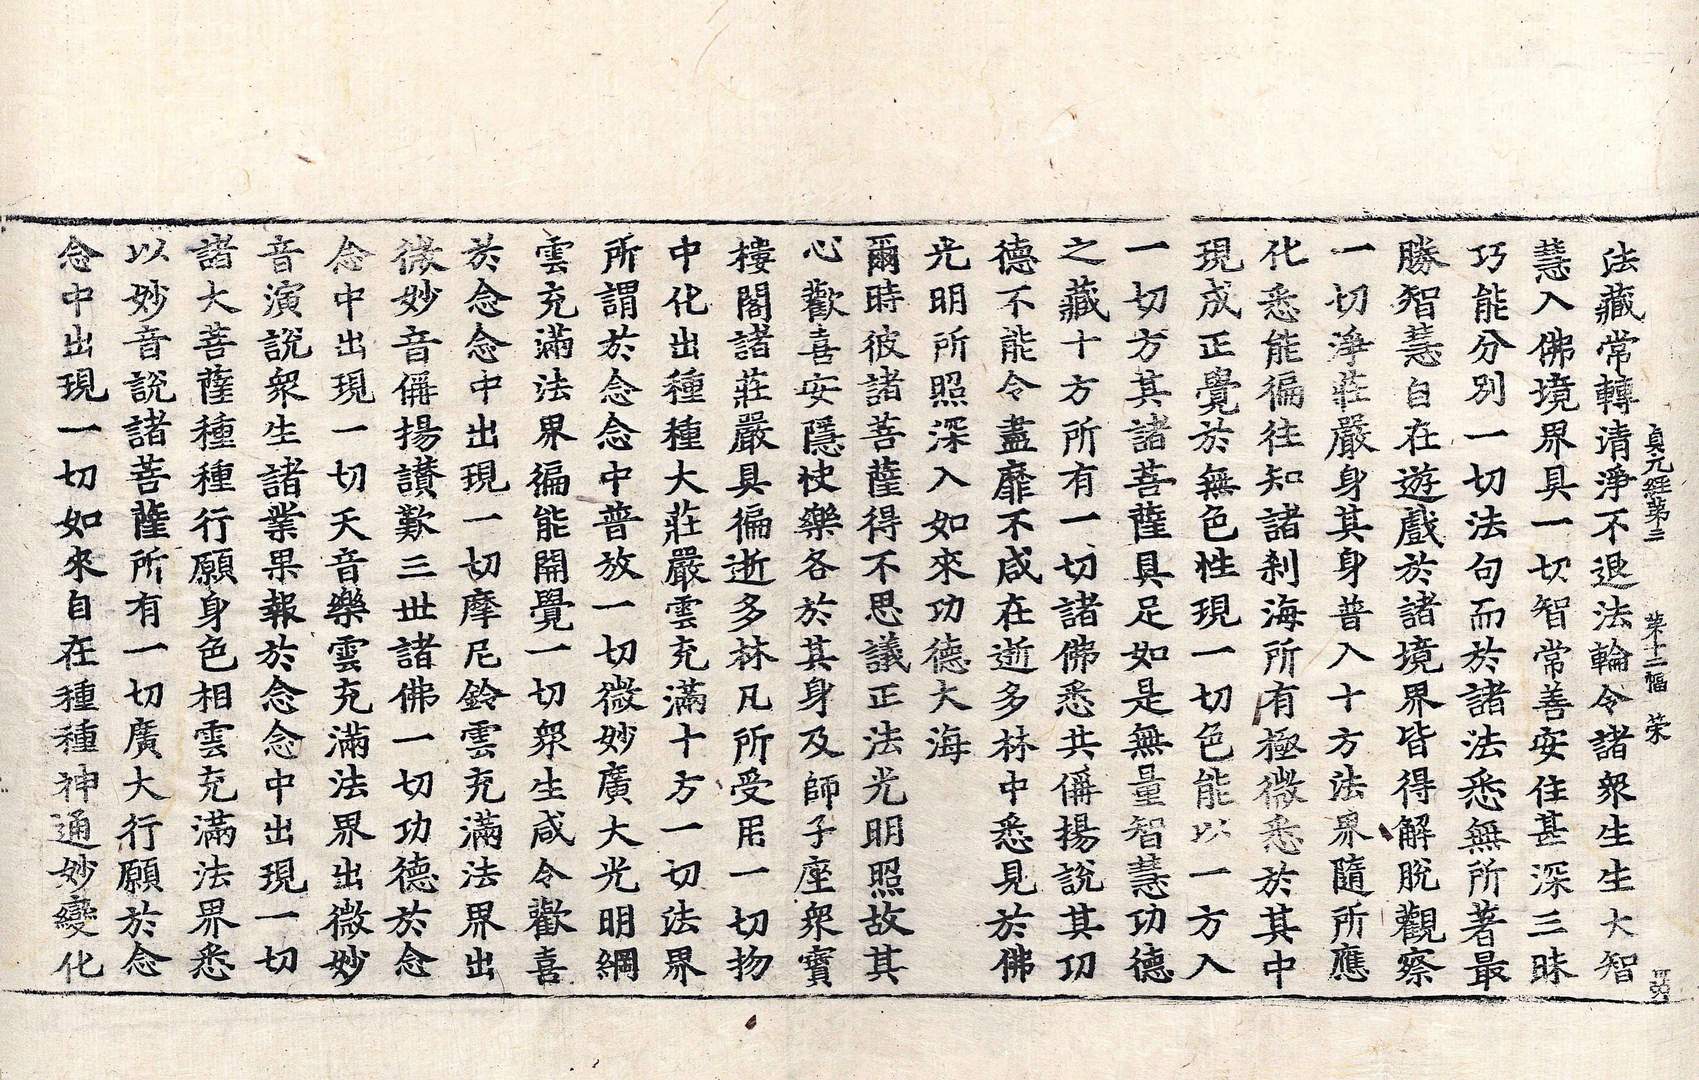 貞元經第三 第十二幅 榮
法藏常轉清淨不退法輪令諸衆生生大智
慧入佛境界具一切智常善安住甚深三昧
巧能分別一切法句而於諸法悉無所著最
勝智慧自在遊戲於諸境界皆得解脫觀察
一切淨莊嚴身其身普入十方法界隨所應
化悉能徧往知諸刹海所有極微悉於其中
現成正覺於無色性現一切色能以一方入
一切方其諸菩薩具足如是無量智慧功德
之藏十方所有一切諸佛悉共偁揚說其功
德不能令盡靡不咸在逝多林中悉見於佛
光明所照深入如來功德大海
爾時彼諸菩薩得不思議正法光明照故其
心歡喜安隱快樂各於其身及師子座衆寶
樓閣諸莊嚴具徧逝多林凡所受用一切物
中化出種種大莊嚴雲充滿十方一切法界
所謂於念念中普放一切微妙廣大光明網
雲充滿法界徧能開覺一切衆生咸令歡喜
於念念中出現一切摩尼鈴雲充滿法界出
微妙音偁揚讃歎三世諸佛一切功德於念
念中出現一切天音樂雲充滿法界出微妙
音演說衆生諸業果報於念念中出現一切
諸大菩薩種種行願身色相雲充滿法界悉
以妙音說諸菩薩所有一切廣大行願於念
念中出現一切如來自在種種神通妙變化